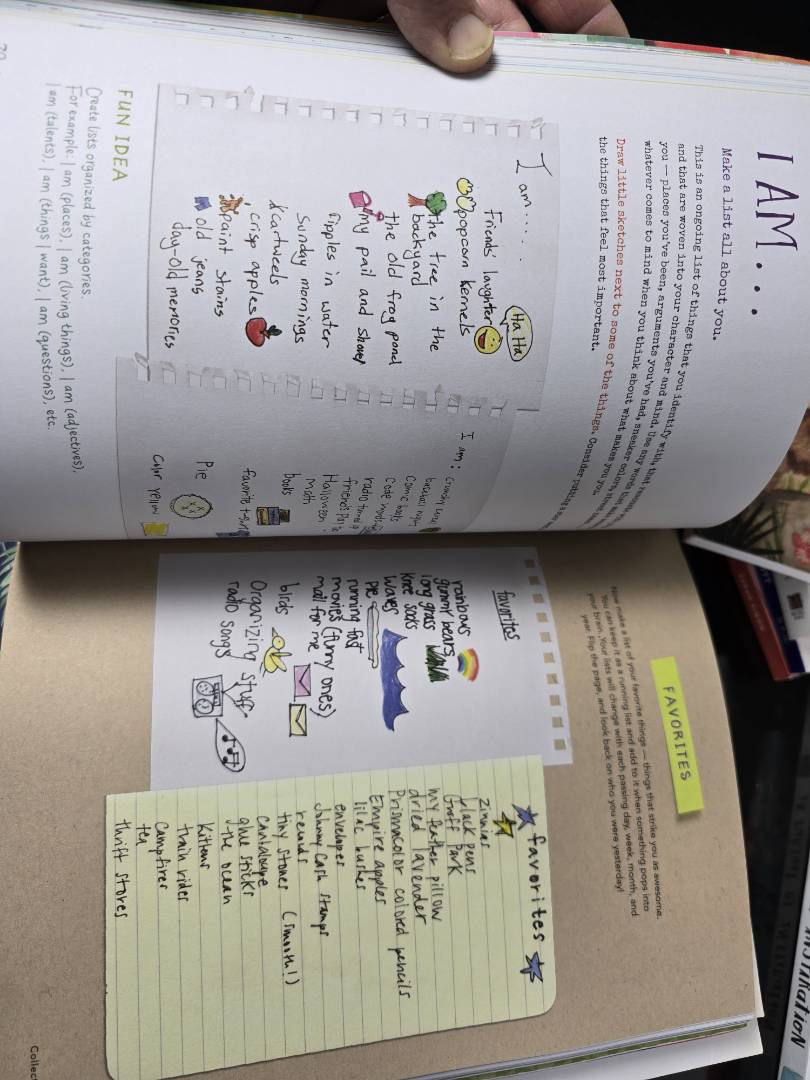 I AM....
Make a list all about you.
This is an ongoing list of things that you identify with, that
and that are woven into your character and mind. Use any words that
you — places you've been, arguments you've had, sneaker colors,
whatever comes to mind when you think about what makes you you.
Draw little sketches next to some of the things. Consider
the things that feel most important.
I am.....
Ha Ha
Friends' laughter
popcorn kernels
the tree in the
backyard
the old frog pond
my pail and shovel
ripples in water
Sunday mornings
crisp apples
paint stains
old jeans
day-old memories
FUN IDEA
Create lists organized by categories.
For example: I am (places), I am (living things), I am (adjectives),
I am (talents), I am (things I want), I am (questions), etc.
I am:
Comic books
Halloween
math
books
Pie
Color yellow
FAVORITES
Now make a list of your favorite things — things that strike you as awesome.
You can keep it as a running list and add to it when something pops into
your brain. Your lists will change with each passing day, week, month, and
year. Flip the page, and look back on who you were yesterday!
favorites
rainbows
gummy bears
long grass
knee socks
waves
pie
running fast
movies (funny ones)
mail for me
birds
Organizing stuff
radio songs
favorites
Zinnias
black pens
Goff Park
my feather pillow
dried lavender
Prismacolor colored pencils
Empire apples
lilac bushes
envelopes
Johnny Cash stamps
tiny stones (smooth!)
Cantaloupe
glue sticks
the ocean
Kittens
train rides
Campfires
tea
thrift stores
Collec